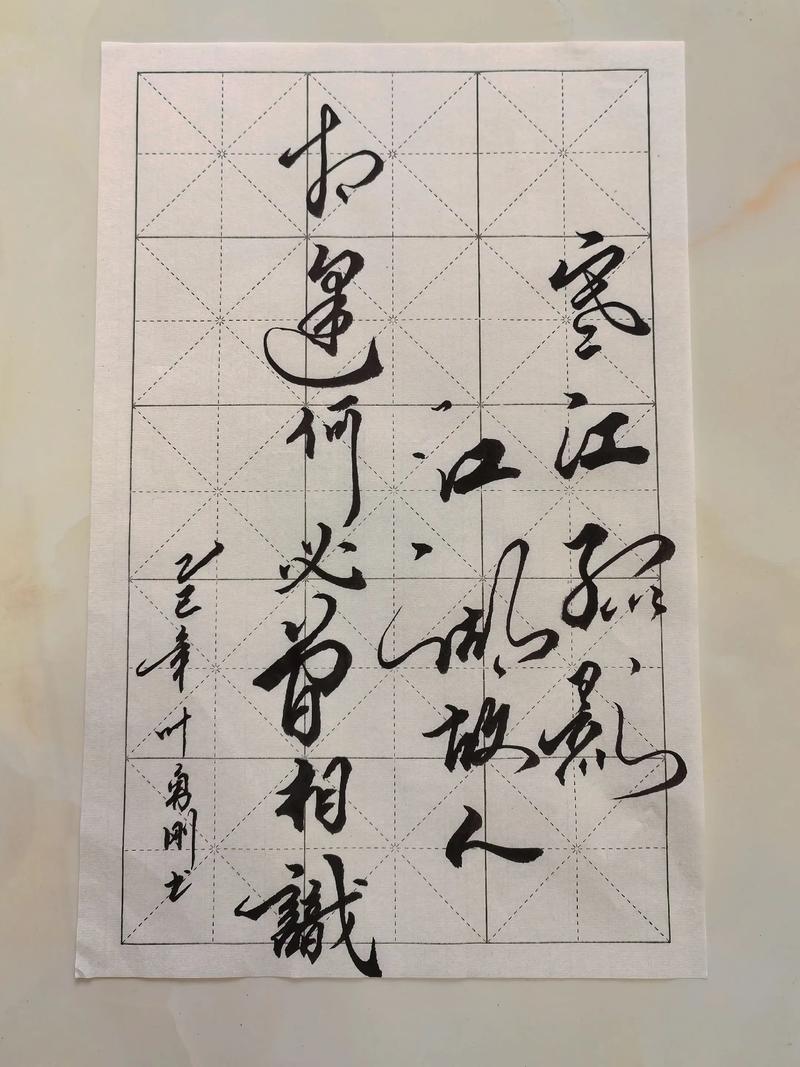 寒江孤影
江湖故人
相逢何必曾相識
乙巳年叶勇刚书